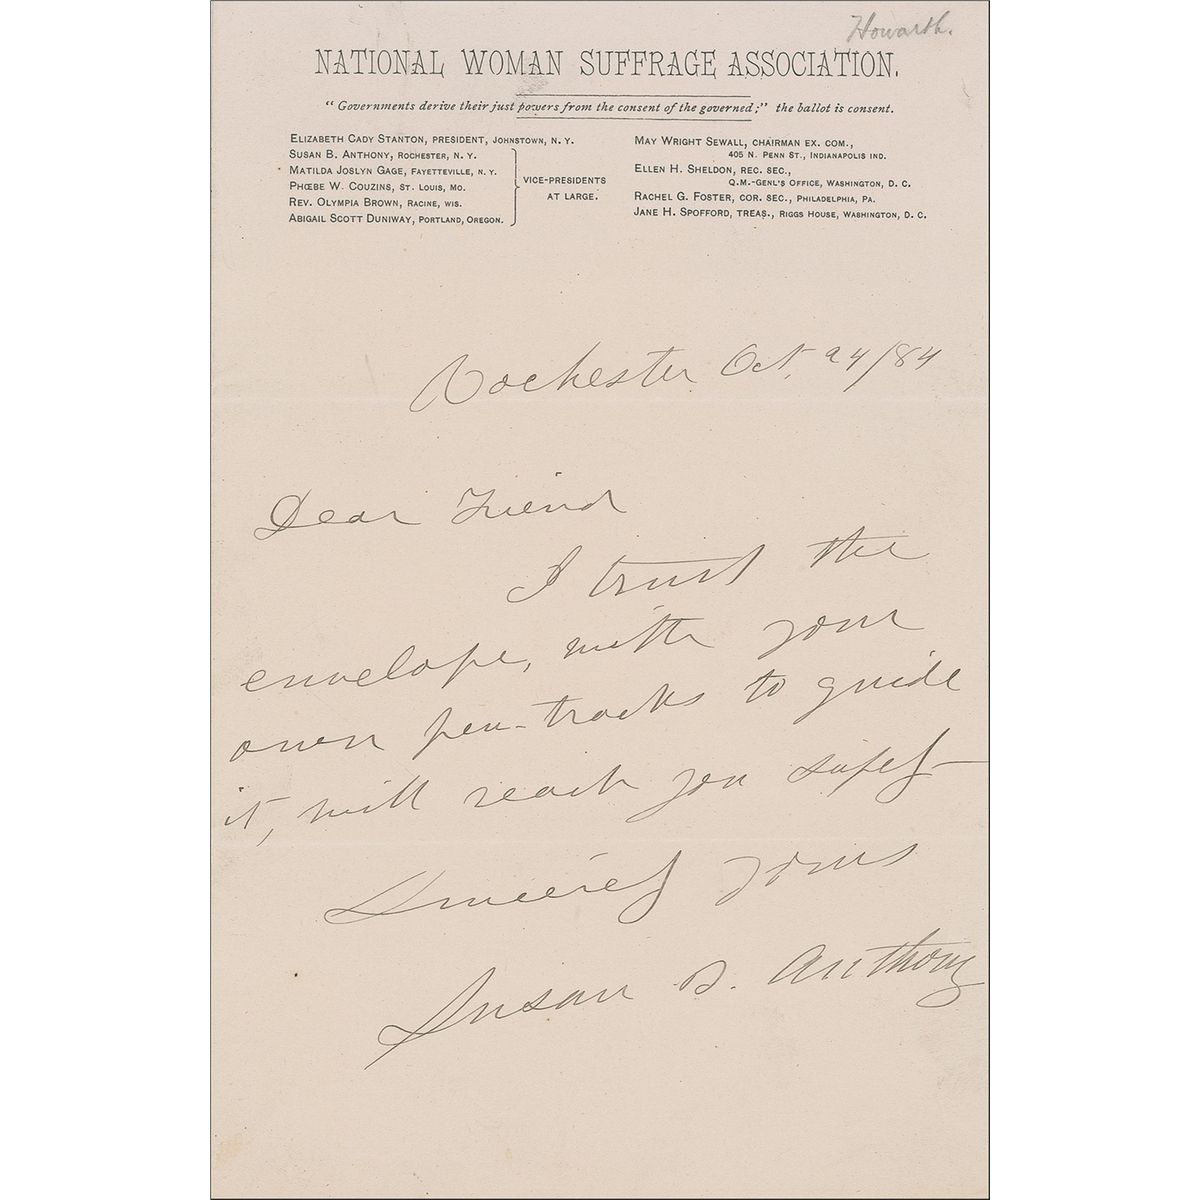 Howarth.
NATIONAL WOMAN SUFFRAGE ASSOCIATION.
"Governments derive their just powers from the consent of the governed;" the ballot is consent.
ELIZABETH CADY STANTON, PRESIDENT, JOHNSTOWN, N. Y.
SUSAN B. ANTHONY, ROCHESTER, N. Y.
MATILDA JOSLYN GAGE, FAYETTEVILLE, N. Y.
PHŒBE W. COUZINS, ST. LOUIS, MO.
REV. OLYMPIA BROWN, RACINE, WIS.
ABIGAIL SCOTT DUNIWAY, PORTLAND, OREGON.
VICE-PRESIDENTS
AT LARGE.
MAY WRIGHT SEWALL, CHAIRMAN EX. COM.,
405 N. PENN ST., INDIANAPOLIS IND.
ELLEN H. SHELDON, REC. SEC.,
Q.M.-GENL'S OFFICE, WASHINGTON, D. C.
RACHEL G. FOSTER, COR. SEC., PHILADELPHIA, PA.
JANE H. SPOFFORD, TREAS., RIGGS HOUSE, WASHINGTON, D. C.
Rochester Oct. 24/84
Dear Friend
I trust the
envelope, with your
own pen-tracks to guide
it, will reach you safely—
Sincerely yours
Susan B. Anthony